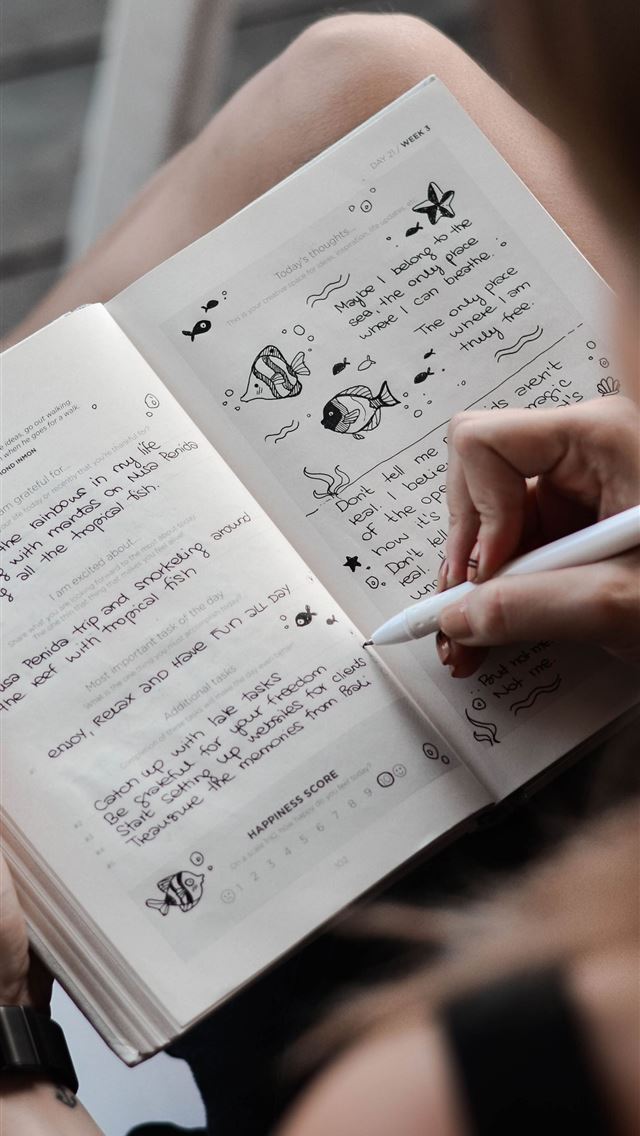 ideas, go out walking
when he goes for a walk.
OND INMON
am grateful for...
the rainbows in my life
with mantas on Nusa Penida
all the tropical fish.
I am excited about...
Share what you are looking forward to the most about today
usa Penida trip and snorkeling around
the reef with tropical fish
Most important task of the day
enjoy, Relax and Have fun all Day
Additional tasks
Completion of these tasks will make the day even better
#2 Catch up with late tasks
#3 Be grateful for your freedom
#4 Start setting up websites for clients
#5 Treausure the memories from Bali
HAPPINESS SCORE
On a scale 1-10, how happy do you feel today?
1 2 3 4 5 6 7 8 9
102
DAY 21 / WEEK 3
Today's thoughts...
This is your creative space for ideas, inspiration, life updates, etc.
Maybe I belong to the
sea. the only place
where I can breathe.
The only place
where I am
truly free.
aren't
magic
Don't tell me
real. I believe
of the ope
how it's
Don't tell
real.
But not me.
Not me.